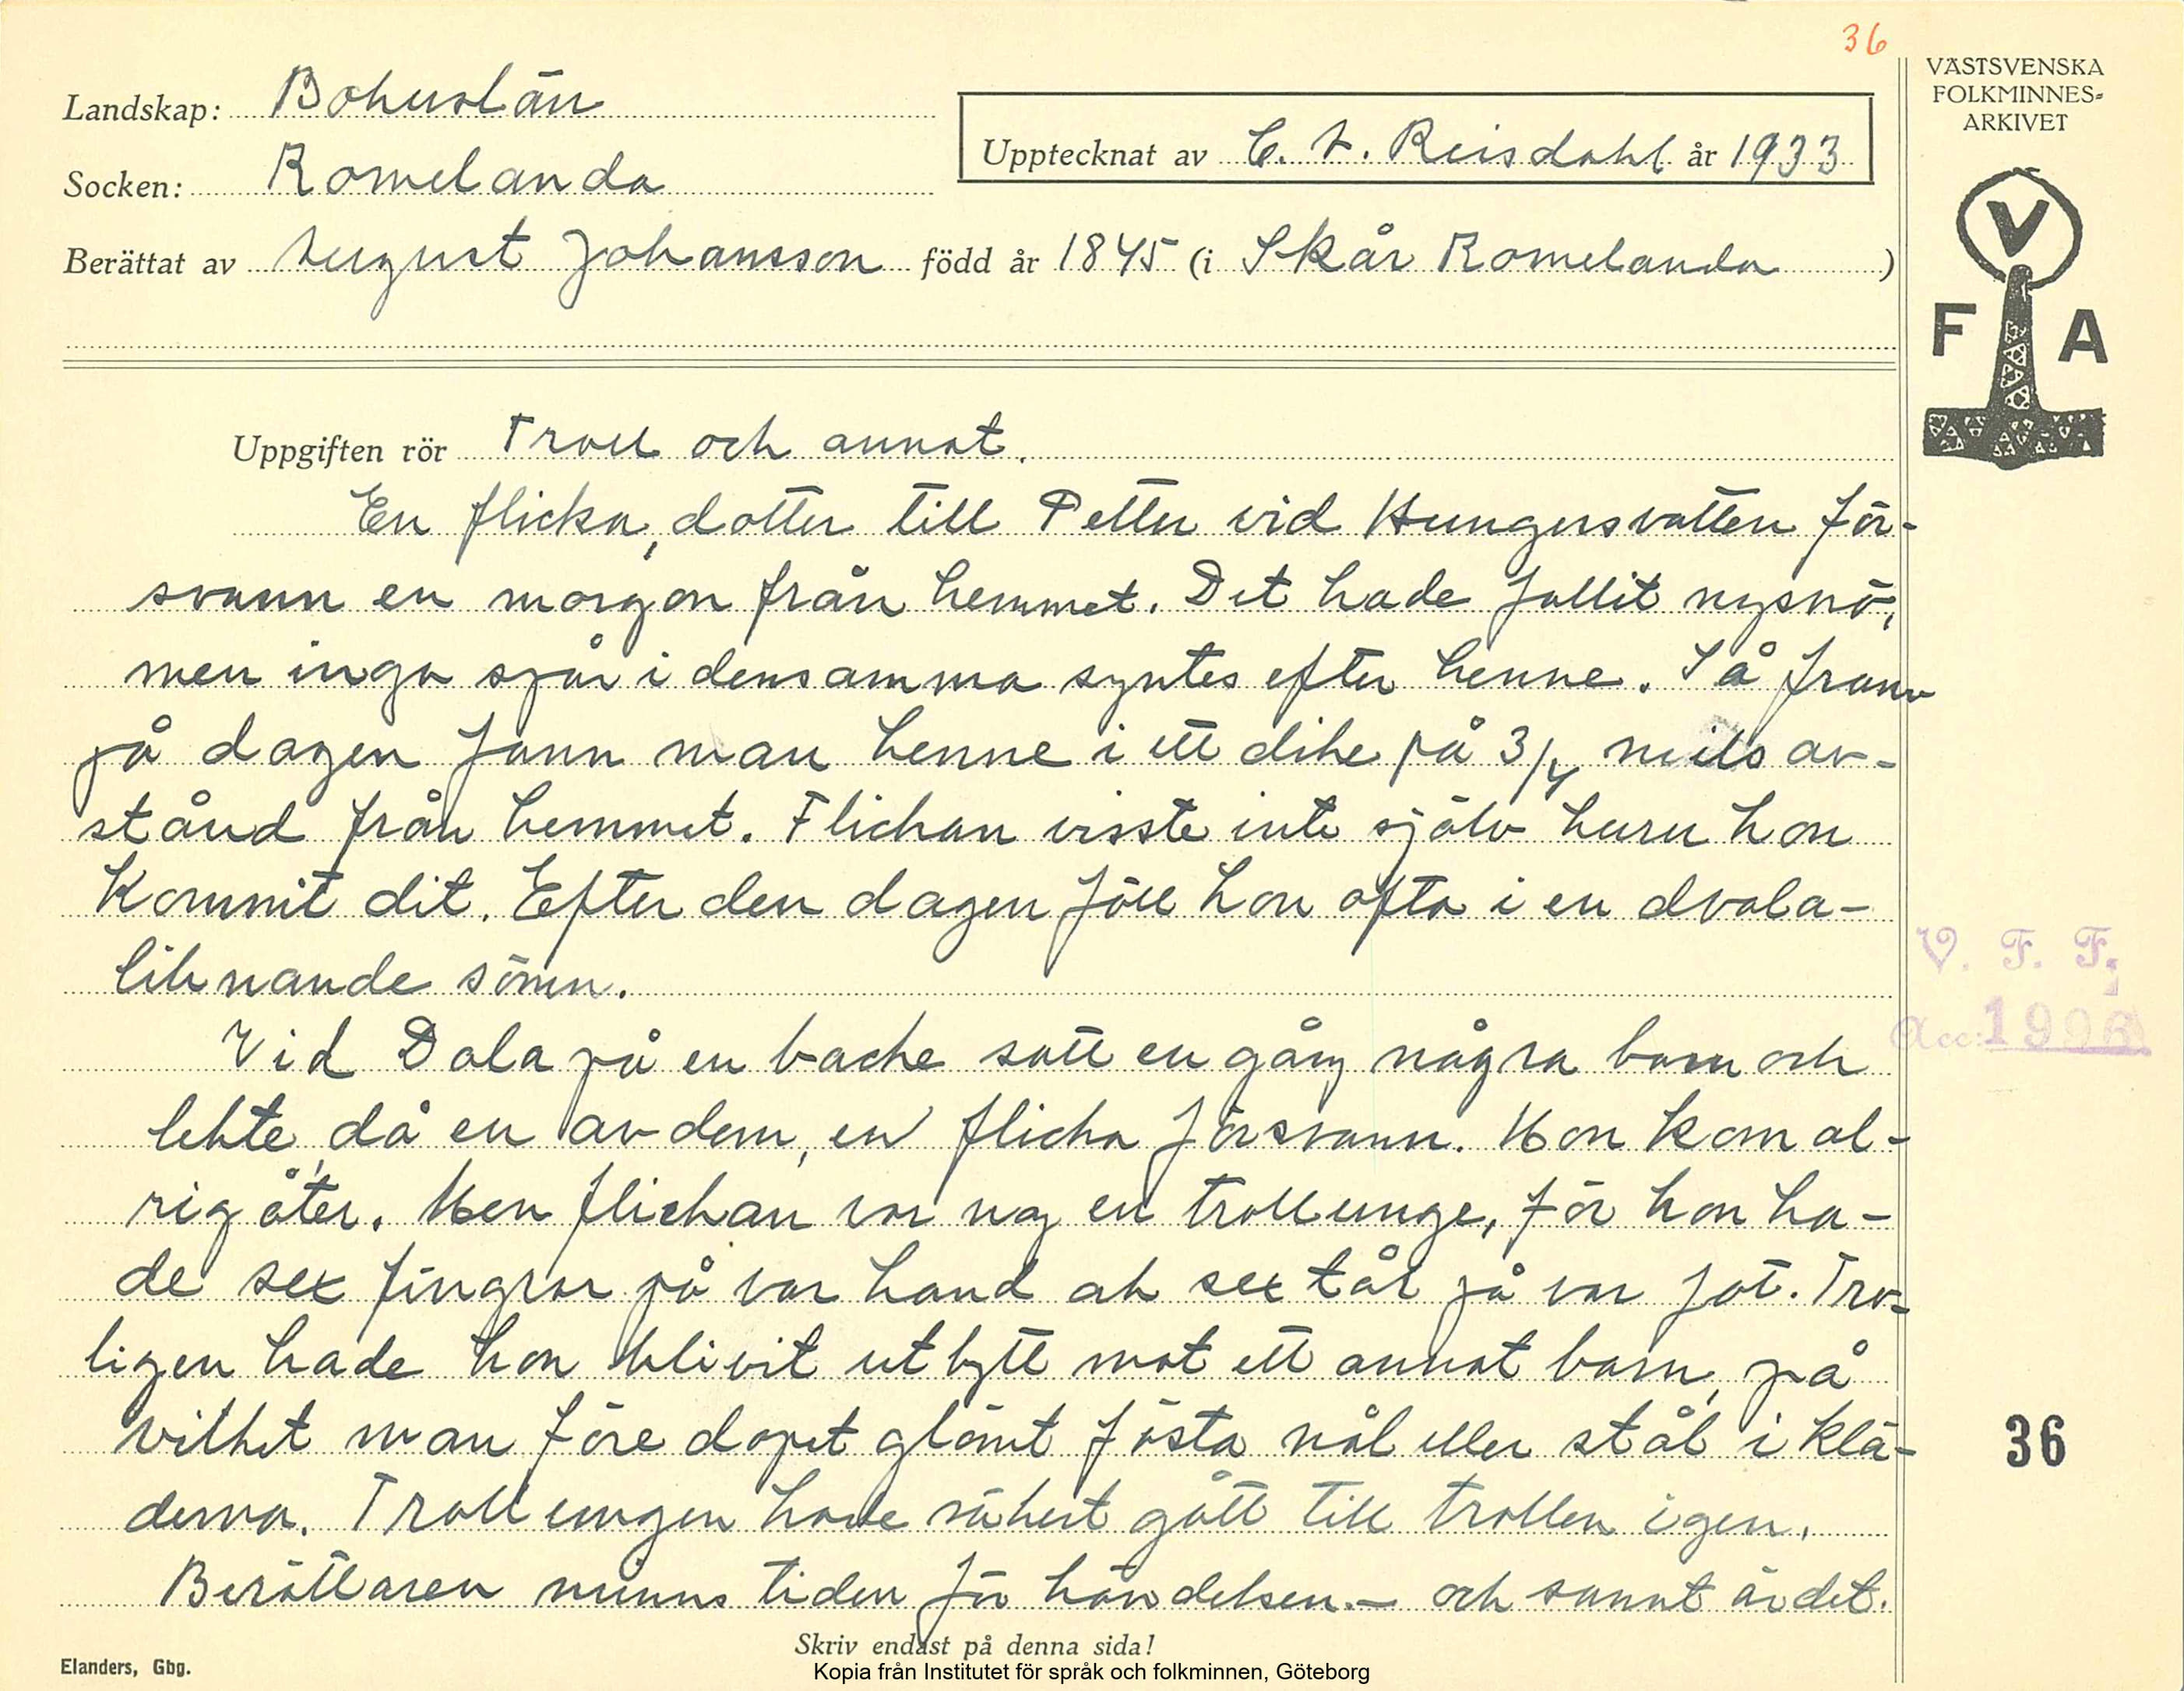 36
VÄSTSVENSKA
FOLKMINNES-
ARKIVET
Landskap: Bohuslän
Upptecknat av C. A. Reisdahl år 1933
Socken: Romelanda
Berättat av August Johansson född år 1845 (i Skår Romelanda )
V
F A
Uppgiften rör Troll och annat.
En flicka, dotter till Petter vid Hungersvatten för-
svann en morgon från hemmet. Det hade fallit nysnö,
men inga spår i densamma syntes efter henne. Så fram
på dagen fann man henne i ett dike på 3/4 mils av-
stånd från hemmet. Flickan visste inte själv huru hon
kommit dit. Efter den dagen föll hon ofta i en dvala-
liknande sömn.
V. F. F.
Acc: 19
Vid Dala på en backe satt en gång några barn och
lekte, då en av dem, en flicka försvann. Hon kom al-
rig åter. Men flickan var nog en trollunge, för hon ha-
de sex fingrar på var hand och sex tår på var fot. Tro-
ligen hade hon blivit utbytt mot ett annat barn, på
vilket man före dopet glömt fästa nål eller stål i klä-
derna. Trollungen hade säkert gått till trollen igen.
36
Berättaren minns tiden för händelsen. — och sannt är det.
Skriv endast på denna sida!
Elanders, Gbg.
Kopia från Institutet för språk och folkminnen, Göteborg